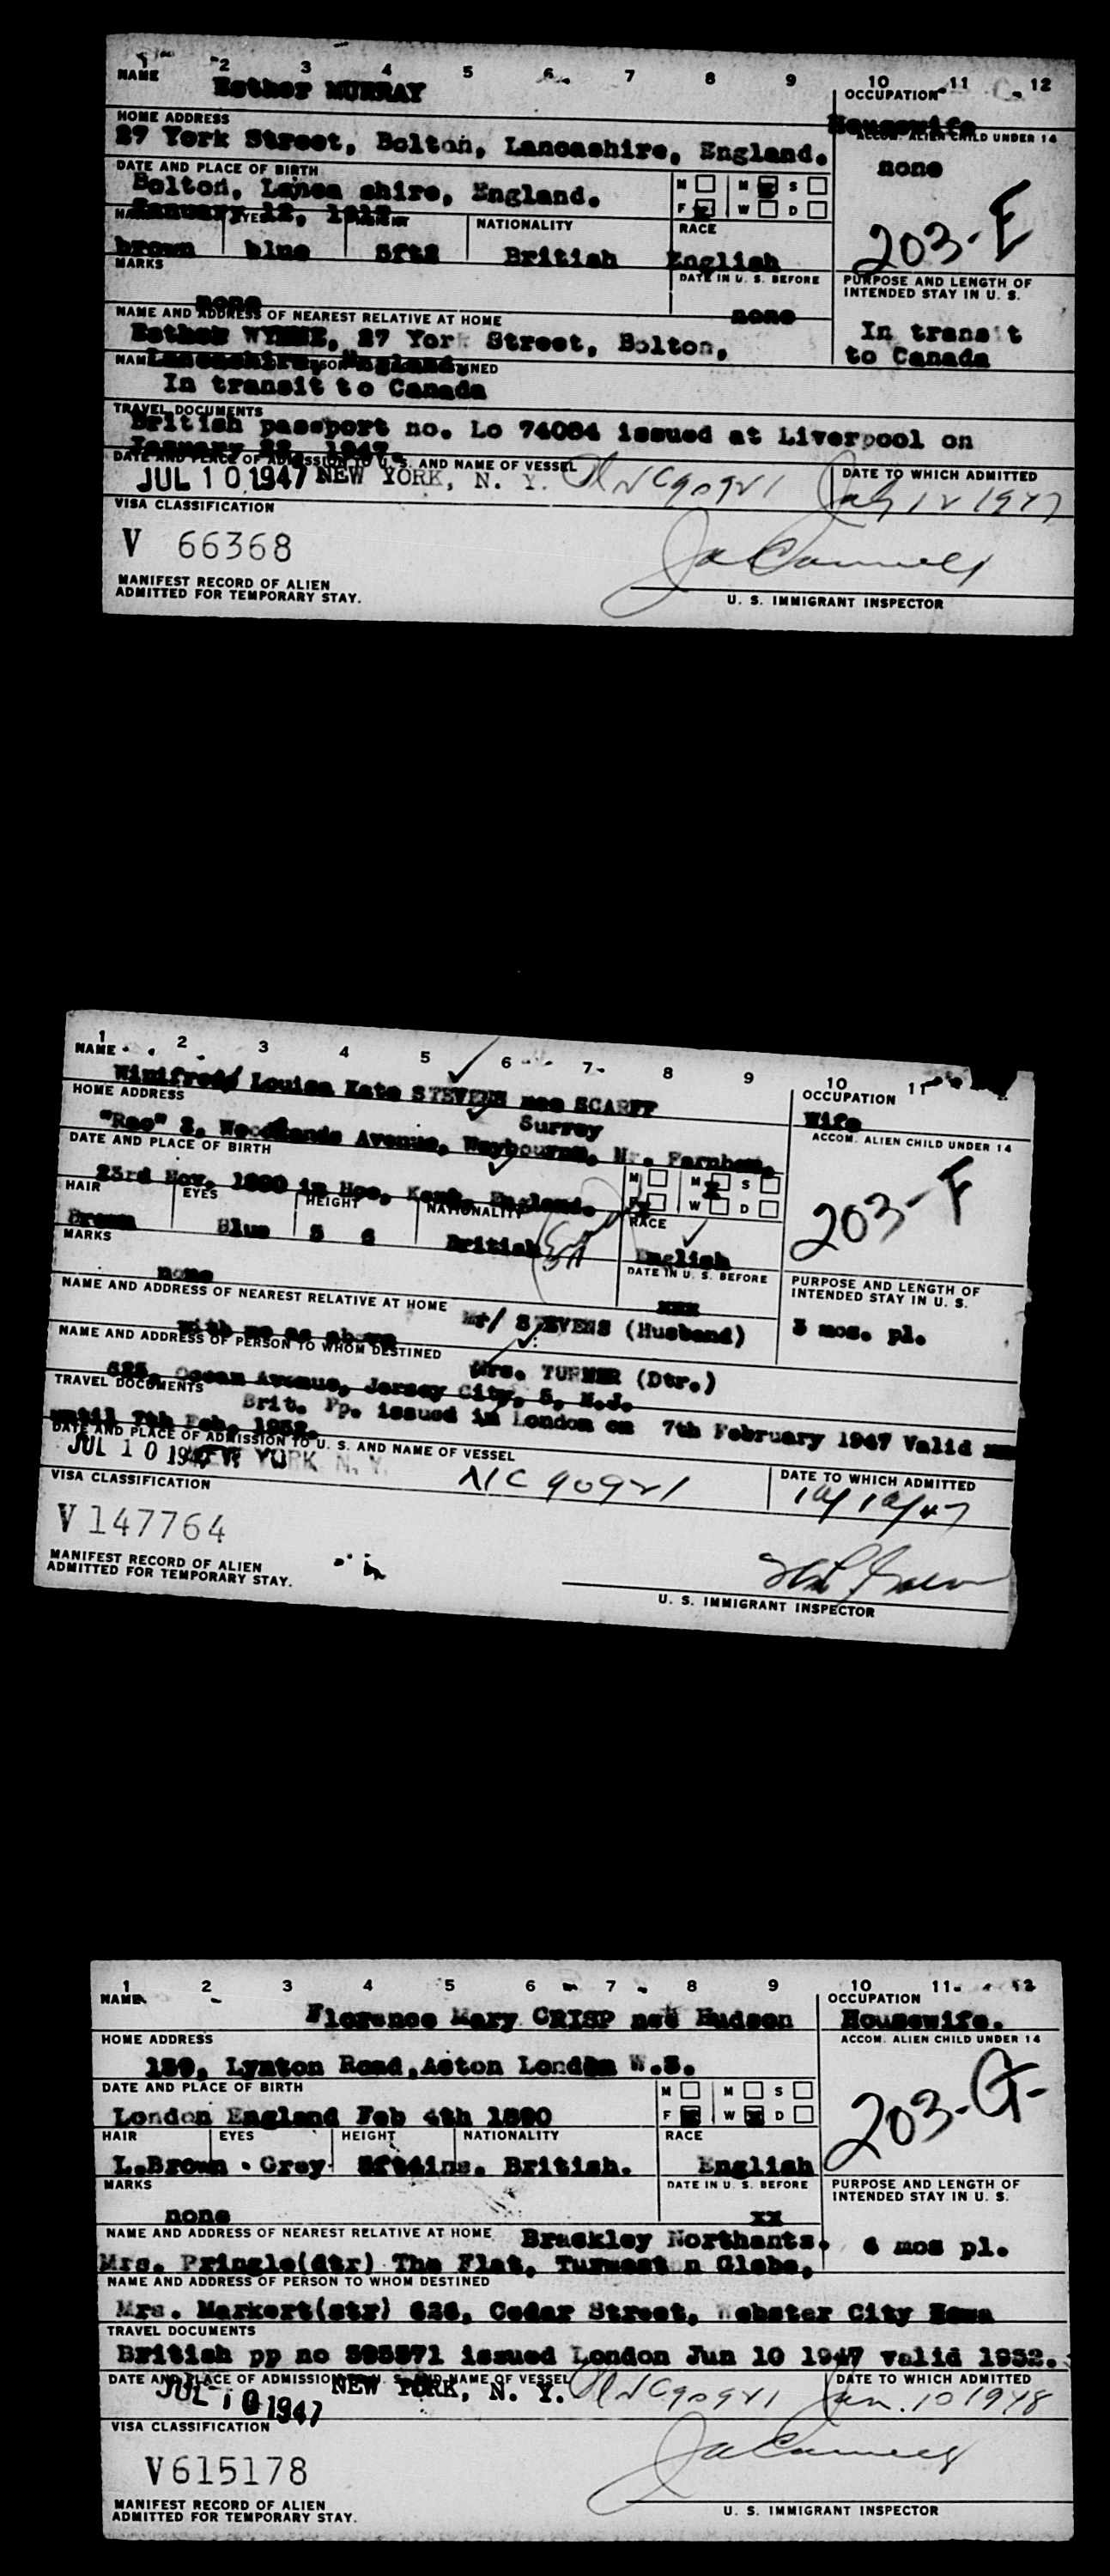 1 2 3 4 5 6 7 8 9 10 11 12
NAME
Esther MURRAY
OCCUPATION
Housewife
HOME ADDRESS
ACCOM. ALIEN CHILD UNDER 14
27 York Street, Bolton, Lancashire, England.
none
DATE AND PLACE OF BIRTH
Bolton, Lanca shire, England.
M M S
F W D
January 12,
NATIONALITY
RACE
203-E
brown blue 5ft2 British English
MARKS
DATE IN U. S. BEFORE
PURPOSE AND LENGTH OF
INTENDED STAY IN U. S.
none
none
NAME AND ADDRESS OF NEAREST RELATIVE AT HOME
Esther WYNNE, 27 York Street, Bolton,
In trans t
to Canada
Lancashire, England.
In transit to Canada
TRAVEL DOCUMENTS
British passport no. Lo 74084 issued at Liverpool on
January 22, 1947.
DATE AND PLACE OF ADMISSION TO U. S. AND NAME OF VESSEL
DATE TO WHICH ADMITTED
JUL 10 1947 NEW YORK, N. Y. NC90921 July 12 1947
VISA CLASSIFICATION
V 66368
MANIFEST RECORD OF ALIEN
ADMITTED FOR TEMPORARY STAY.
U. S. IMMIGRANT INSPECTOR
1 2 3 4 5 6 7 8 9 10 11
NAME
Winifred Louisa Kate STEVENS nee SCARFF
OCCUPATION
Wife
HOME ADDRESS
ACCOM. ALIEN CHILD UNDER 14
Surrey
Avenue, Weybourne, Nr. Farnham,
DATE AND PLACE OF BIRTH
23rd Nov. 1890 in Hoo, Kent, England.
M M S
F W D
HAIR EYES HEIGHT NATIONALITY RACE
203-F
Brown Blue 5 6 British English
MARKS
DATE IN U. S. BEFORE
PURPOSE AND LENGTH OF
INTENDED STAY IN U. S.
none
xxx
NAME AND ADDRESS OF NEAREST RELATIVE AT HOME
Mr/ STEVENS (Husband)
3 mos. pl.
with me as above
NAME AND ADDRESS OF PERSON TO WHOM DESTINED
Mrs. TURNER (Dtr.)
Ocean Avenue, Jersey City, 5, N.J.
TRAVEL DOCUMENTS
Brit. Pp. issued in London on 7th February 1947 Valid
until 7th Feb. 1952.
DATE AND PLACE OF ADMISSION TO U. S. AND NAME OF VESSEL
DATE TO WHICH ADMITTED
JUL 10 1947 NEW YORK N. Y.
NC 90921
10/10/47
VISA CLASSIFICATION
V 147764
MANIFEST RECORD OF ALIEN
ADMITTED FOR TEMPORARY STAY.
U. S. IMMIGRANT INSPECTOR
1 2 3 4 5 6 7 8 9 10 11 12
NAME
Florence Mary CRISP neé Hudson
OCCUPATION
Housewife.
HOME ADDRESS
ACCOM. ALIEN CHILD UNDER 14
159, Lynton Road, Acton London W.3.
DATE AND PLACE OF BIRTH
M M S
London England Feb 4th 1890
F W D
203-G
HAIR EYES HEIGHT NATIONALITY RACE
L.Brown Grey 5ft4ins. British. English
MARKS
DATE IN U. S. BEFORE
PURPOSE AND LENGTH OF
INTENDED STAY IN U. S.
none
xx
NAME AND ADDRESS OF NEAREST RELATIVE AT HOME
Brackley Northants.
6 mos pl.
Mrs. Pringle(dtr) The Flat, Turweston Glebe,
NAME AND ADDRESS OF PERSON TO WHOM DESTINED
Mrs. Markert(str) 626, Cedar Street, Webster City Iowa
TRAVEL DOCUMENTS
British pp no issued London Jun 10 1947 valid 1952.
DATE AND PLACE OF ADMISSION TO U. S. AND NAME OF VESSEL
DATE TO WHICH ADMITTED
JUL 10 1947 NEW YORK, N. Y. NC90921 Jan. 10 1948
VISA CLASSIFICATION
V615178
MANIFEST RECORD OF ALIEN
ADMITTED FOR TEMPORARY STAY.
U. S. IMMIGRANT INSPECTOR